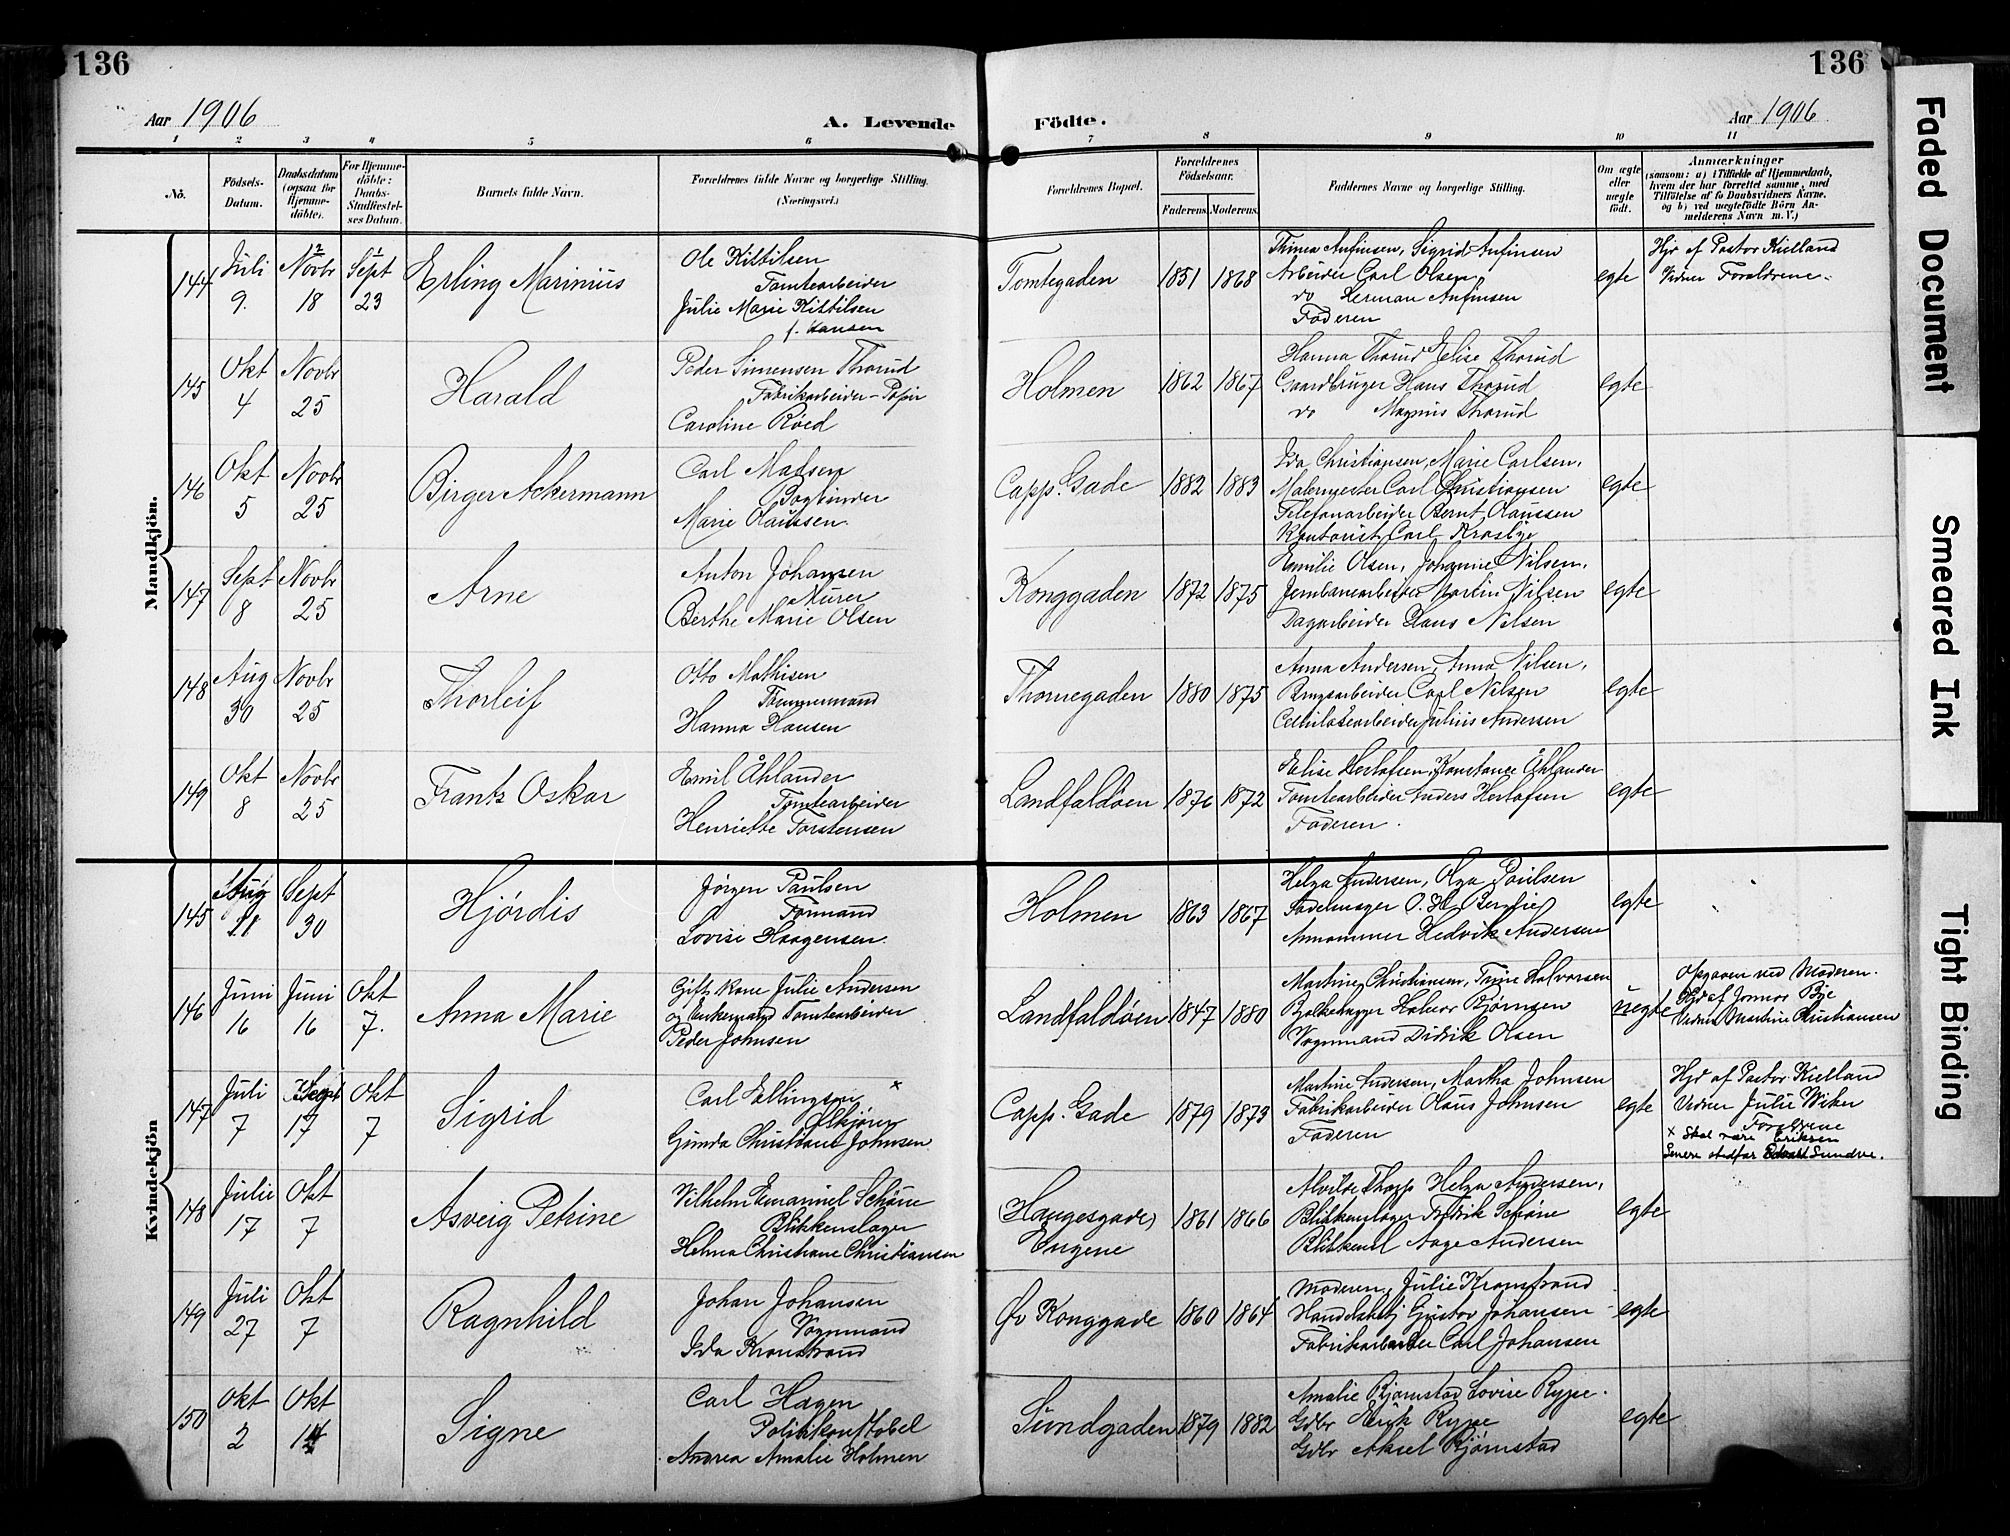 136
136
Aar 1906
A. Levende
Födte.
Aar 1906
1 2 3 4 5 6 7 8 9 10 11
No.
Födsels-
Datum.
Daabsdatum
(ogsaa for
Hjemme-
döbte).
For Hjemme-
döbte:
Daabs-
Stadfæstel-
ses Datum.
Barnets fulde Navn.
Forældrenes fulde Navne og borgerlige Stilling.
(Næringsvei.)
Forældrenes Bopæl.
Forældrenes
Födselsaar.
Faderens. Moderens.
Faddernes Navne og borgerlige Stilling.
Om ægte
eller
uægte
födt.
Anmærkninger
(saasom: a) i Tilfælde af Hjemmedaab,
hvem der har forrettet samme, med
Tilföielse af to Daabsvidners Navne,
og b) ved uægtefödte Börn An-
melderens Navn m. V.)
Mandkjön.
144
Juli
9.
Novbr
18
Sept
23
Erling Marinius
Ole Kittilsen
Tomtearbeider
Julie Marie Kittilsen
f. Hansen
Tomtegaden
1851 1868
Thinea Anfinsen, Sigrid Anfinsen
Arbeider Carl Olsen
do Herman Anfinsen
Faderen
egte
Hjd af Pastor Kielland
Vidner Foreldrene.
145
Okt
4
Novbr
25
Harald
Peder Simensen Thorud
Fabrikarbeider - Papir
Caroline Röed
Holmen
1862 1867
Hanna Thorud, Elise Thorud
Gaardbruger Hans Thorud
do Magnus Thorud
egte
146
Okt
5
Novbr
25
Birger Ackermann
Carl Madsen
Bogbinder
Marie Claussen
Capp. Gade
1882 1883
Ida Christiansen, Marie Carlsen,
Malermester Carl Christiansen
Telefonarbeider Bernt Claussen
Kontorist Carl Krosbye
egte
147
Sept
8
Novbr
25
Arne
Anton Johansen
Murer
Berthe Marie Olsen
Konggaden
1872 1875
Emilie Olsen, Johanne Nilsen,
Jernbanearbeider Martin Nilsen
Dagarbeider Hans Nilsen
egte
148
Aug
30
Novbr
25
Thorleif
Otto Mathisen
Tömmermand
Hanna Hansen
Thornegaden
1880 1875
Anna Andersen, Anna Nilsen,
Brugsarbeider Carl Nilsen
Cellulosearbeider Julius Andersen
egte
149
Okt
8
Novbr
25
Frants Oskar
Emil Åhlander
Tomtearbeider
Henriette Torstensen
Landfaldöen
1876 1872
Elise Herlofsen, Konstance Åhlander
Tomtearbeider Anders Herlofsen
Faderen.
egte
Kvindekjön
145
Aug
11
Sept
30
Hjördis
Jörgen Paulsen
Formand
Lovise Haagensen.
Holmen
1863 1867
Helga Andersen, Olga Poulsen
Sadelmager O. H. Bernie
Annammer Hedvik Andersen
egte
146
Juni
16
Juni
16
Okt
7.
Anna Marie
Gift kone Julie Andersen
og Enkemand Tomtearbeider
Peder Johnsen
Landfaldöen
1847 1880
Martine Christiansen, Trine Halvorsen
Bjelkehugger Halvor Björnsen
Vognmand Didrik Olsen
uegte
Opgaven ved Moderen.
Hjd af Jonmor Bye
Vidner Martine Christiansen
147
Juli
7
Sept
17
Okt
7
Sigrid
Carl Ellingsen x
Gunda Christiane Johnsen
Capp. Gade
1879 1873
Martine Andersen, Martha Johnsen
Fabrikarbeider Olaus Johnsen
Faderen
egte
Hjd af Pastor Kielland
Vidner Julie Wiker
Foreldrene
x Skal være Eriksen
Senere stedfar Edvard Sundve.
148
Julie
17
Okt
7
Asveig Petrine
Vilhelm Emanuel Schöne
Blikkenslager
Helma Christiane Christiansen
(Haugesgade)
Engene
1861 1866
Alvilde Thopp Helga Andersen,
Blikkenslager Fredrik Schöne
Blikkensl Aage Andersen
egte
149
Juli
27
Okt
7
Ragnhild
Johan Johansen
Vognmand
Ida Kronstrand
Öv Konggade
1860 1864
Moderen, Julie Kronstrand
Handelsbetj Gustav Johansen
Fabrikarbeider Carl Johansen
egte
150
Okt
2
Okt
14
Signe
Carl Hagen
Politikonstobel
Andrea Amalie Holmen
Sundgaden
1879 1882
Amalie Björnstad Lovise Rype.
Gdbr Erik Rype
Gdbr Aksel Björnstad
egte
Faded Document
Smeared Ink
Tight Binding